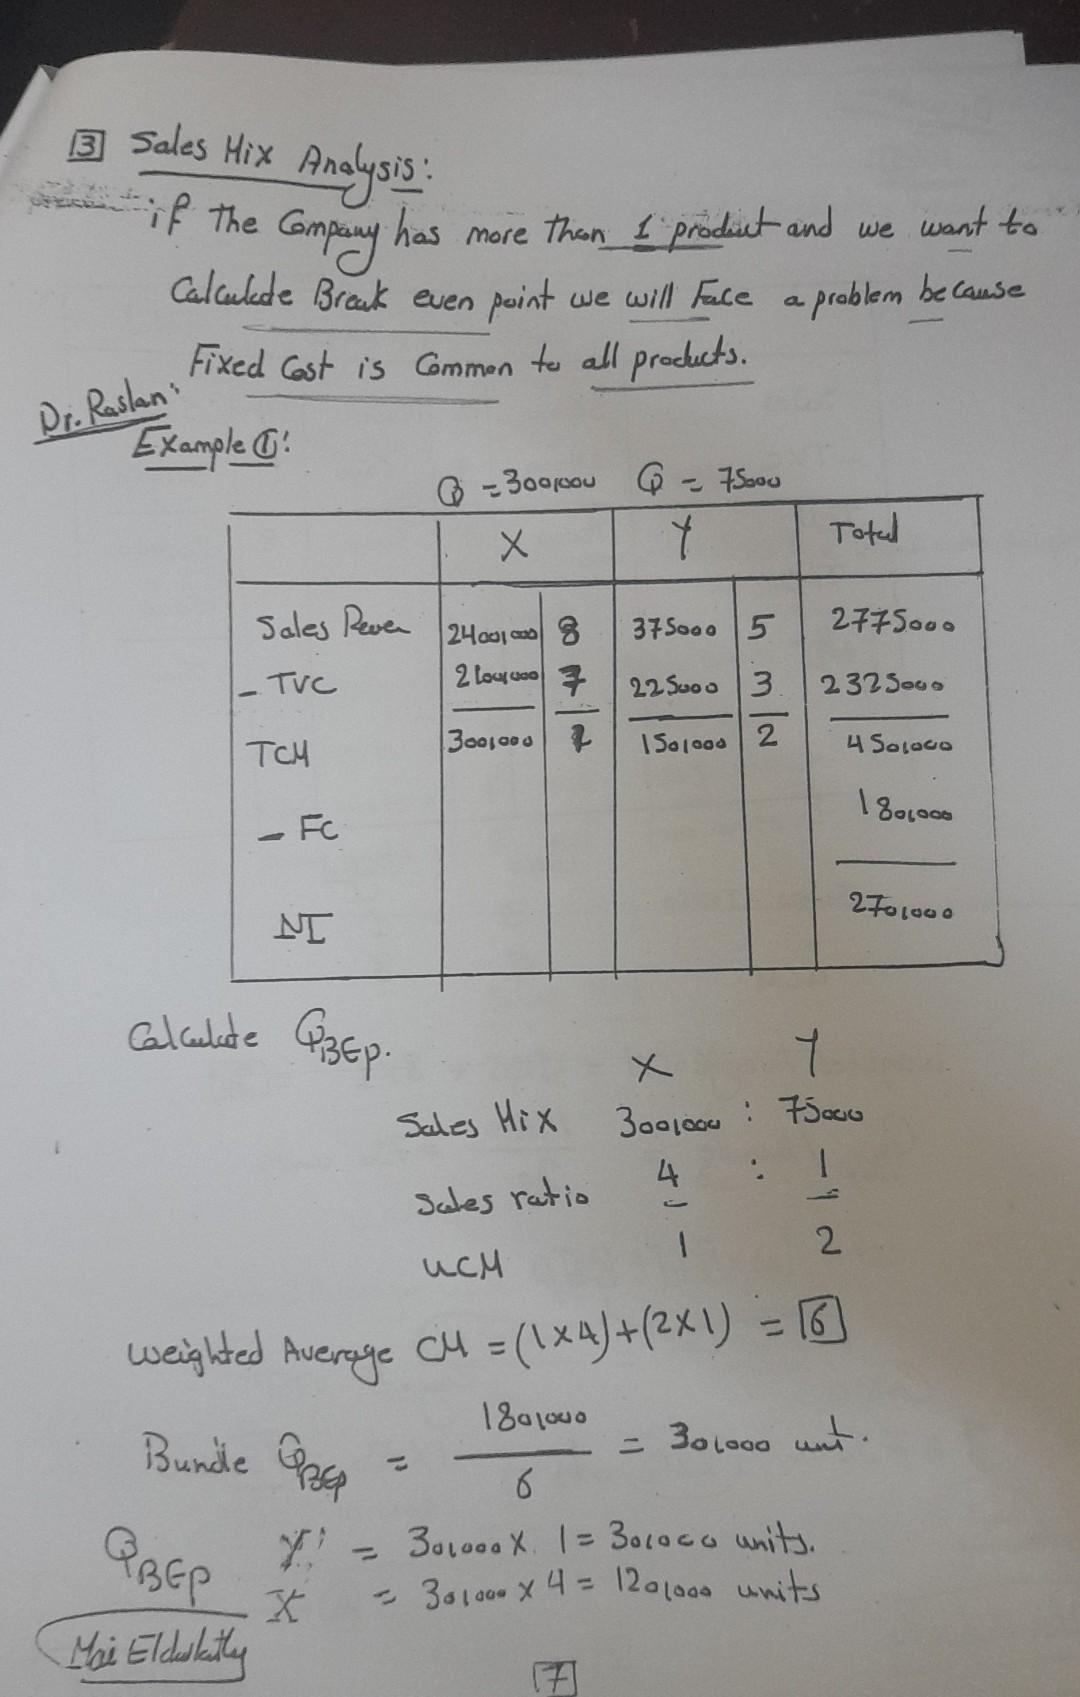 3 Sales Mix Analysis:
if The Company has more than 1 product and we want to
Calculate Break even point we will Face a problem because
Fixed Cost is Common to all products.
Dr. Raslan:
Example ①:
Q = 300,000 Q = 75000
X Y Total
Sales Reven 2400,000 8 375000 5 2775000
- TVC 2100,000 7 225000 3 2325000
TCM 300,000 1 150,000 2 450,000
- FC 180,000
NI 270,000
Calculate QBEp.
X Y
Sales Mix 300,000 : 75000
Sales ratio 4 : 1
UCM 1 2
Weighted Average CM = (1x4)+(2x1) = 6
Bundle QBEp = 180,000 / 6 = 30,000 unt.
QBEp Y: = 30,000 x 1 = 30,000 units.
X = 30,000 x 4 = 120,000 units
7